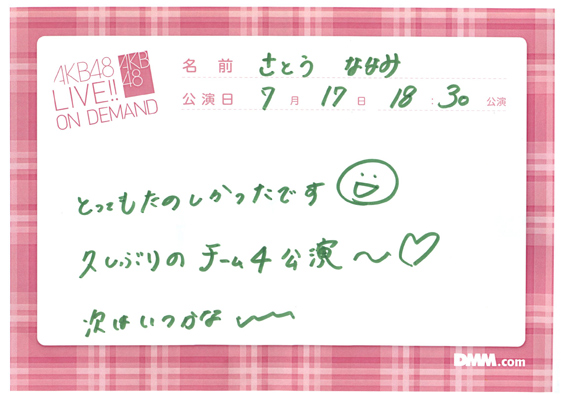 AKB48
LIVE!!
ON DEMAND
AKB
48
名前 さとう ななみ
公演日 7月 17日 18:30 公演
とってもたのしかったです
久しぶりのチーム4公演〜♡
次はいつかな〜
DMM.com